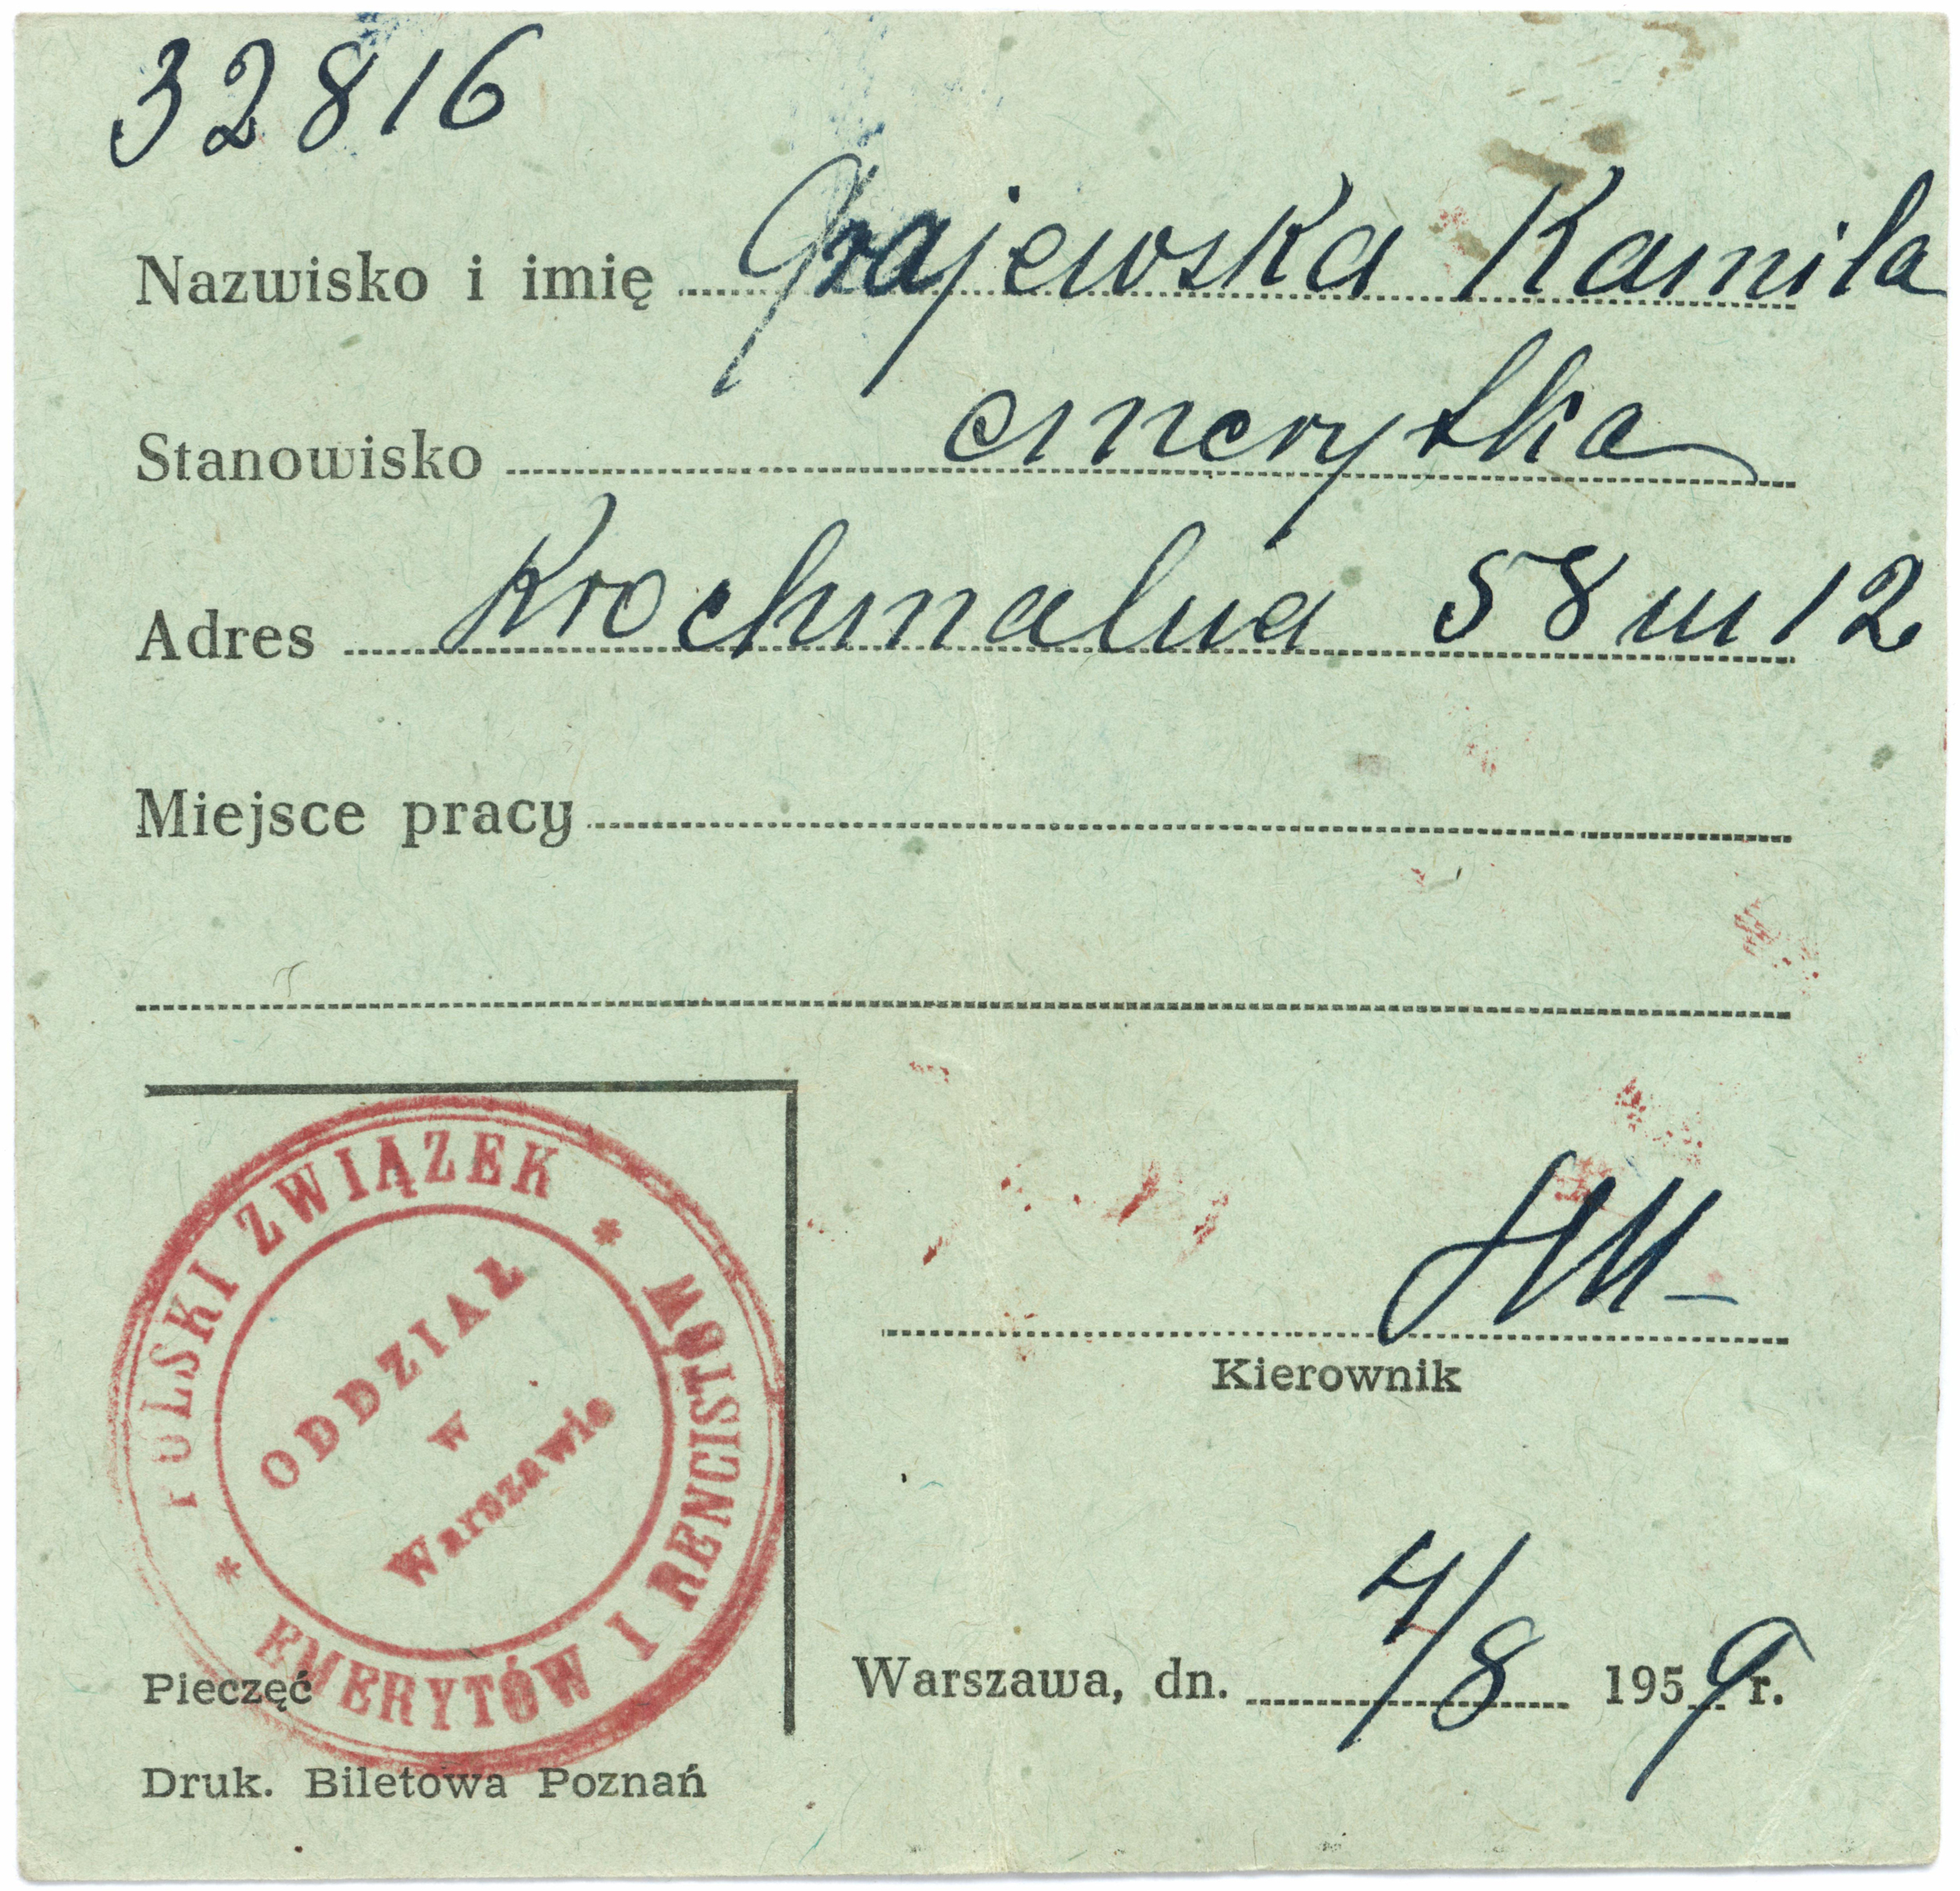 32816
Nazwisko i imię Grajewska Kamila
Stanowisko emerytka
Adres Krochmalna 58 m 12
Miejsce pracy
POLSKI ZWIĄZEK * EMERYTÓW I RENCISTÓW *
ODDZIAŁ
w
Warszawie
Kierownik
Pieczęć
Warszawa, dn. 4/8 1959 r.
Druk. Biletowa Poznań